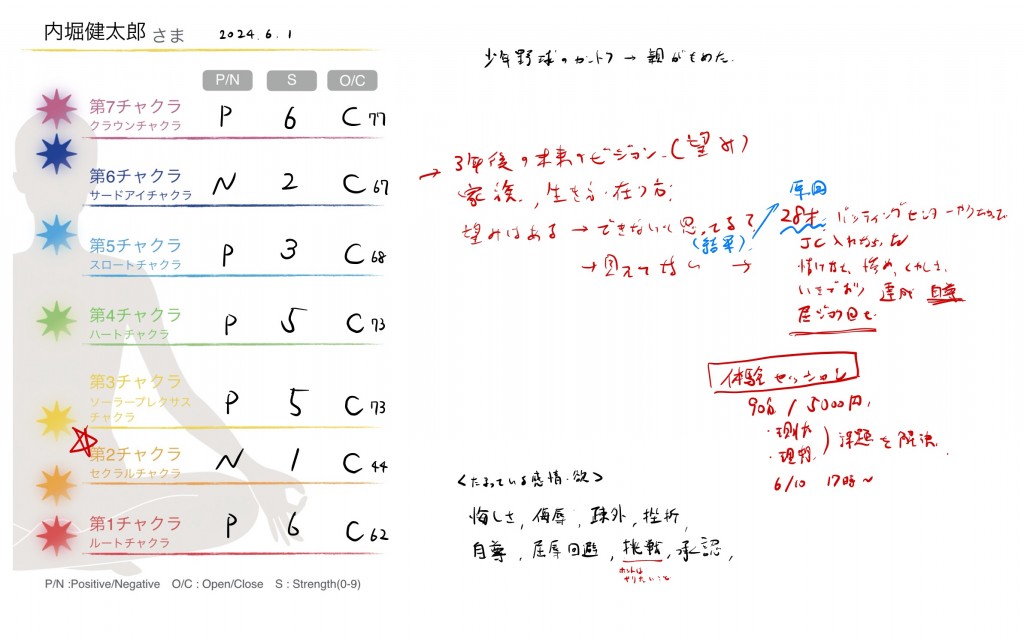 内堀健太郎 さま 2024.6.1
P/N S O/C
第7チャクラ
クラウンチャクラ
P 6 C 77
第6チャクラ
サードアイチャクラ
N 2 C 67
第5チャクラ
スロートチャクラ
P 3 C 68
第4チャクラ
ハートチャクラ
P 5 C 73
第3チャクラ
ソーラープレクサス
チャクラ
P 5 C 73
第2チャクラ
セクラルチャクラ
N 1 C 44
第1チャクラ
ルートチャクラ
P 6 C 62
P/N :Positive/Negative O/C : Open/Close S : Strength(0-9)
少年野球の → 親がもめた.
→ 3年後の未来のビジョン.(望み)
家族, 生き方・在り方,
望みはある → できないと思ってる
(結果)
→ 見えてない →
原因
28才 バッティングセンター
JC
情けなさ, 惨め, くやしさ,
いきどおり 連敗 自尊
屈辱回避
体験セッション
90分 / 5000円,
・現状
・理想 ) 課題を解決.
6/10 17時~
<たまっている感情・欲>
悔しさ, 侮辱, 疎外, 挫折,
自尊, 屈辱回避, 挑戦, 承認,
ホントは
やりたいこと